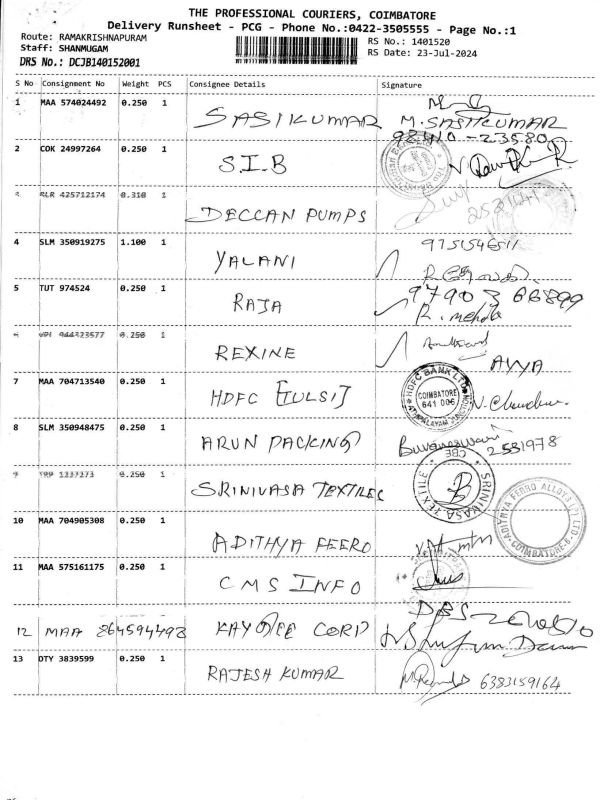 THE PROFESSIONAL COURIERS, COIMBATORE
Delivery Runsheet - PCG - Phone No.:0422-3505555 - Page No.:1
Route: RAMAKRISHNAPURAM
Staff: SHANMUGAM
DRS No.: DCJB140152001
RS No.: 1401520
RS Date: 23-Jul-2024
S No Consignment No Weight PCS Consignee Details Signature
1 MAA 574024492 0.250 1 SASIKUMAR M. SASIKUMAR
98410-23580
2 COK 24997264 0.250 1 S.I.B
BLR 425712174 0.310 1 DECCAN PUMPS
4 SLM 350919275 1.100 1 YALANI 9751546511
5 TUT 974524 0.250 1 RAJA 97903 66899
R. mehala
944323577 0.250 1 REXINE AYYA
7 MAA 704713540 0.250 1 HDFC [TULSI] HDFC BANK LTD COIMBATORE 641 006
8 SLM 350948475 0.250 1 ARUN PACKING Buvaneswari 2531978
9 1237273 0.250 1 SRINIVASA TEXTILES SRINIVASA TEXTILE CBE
10 MAA 704905308 0.250 1 ADITHYA FEERO ADITHYA FERRO ALLOYS (P) LTD COIMBATORE-6
11 MAA 575161175 0.250 1 CMS INFO
12 MAA 864594498 KAYGEE CORP
13 DTY 3839599 0.250 1 RAJESH KUMAR 6383159164